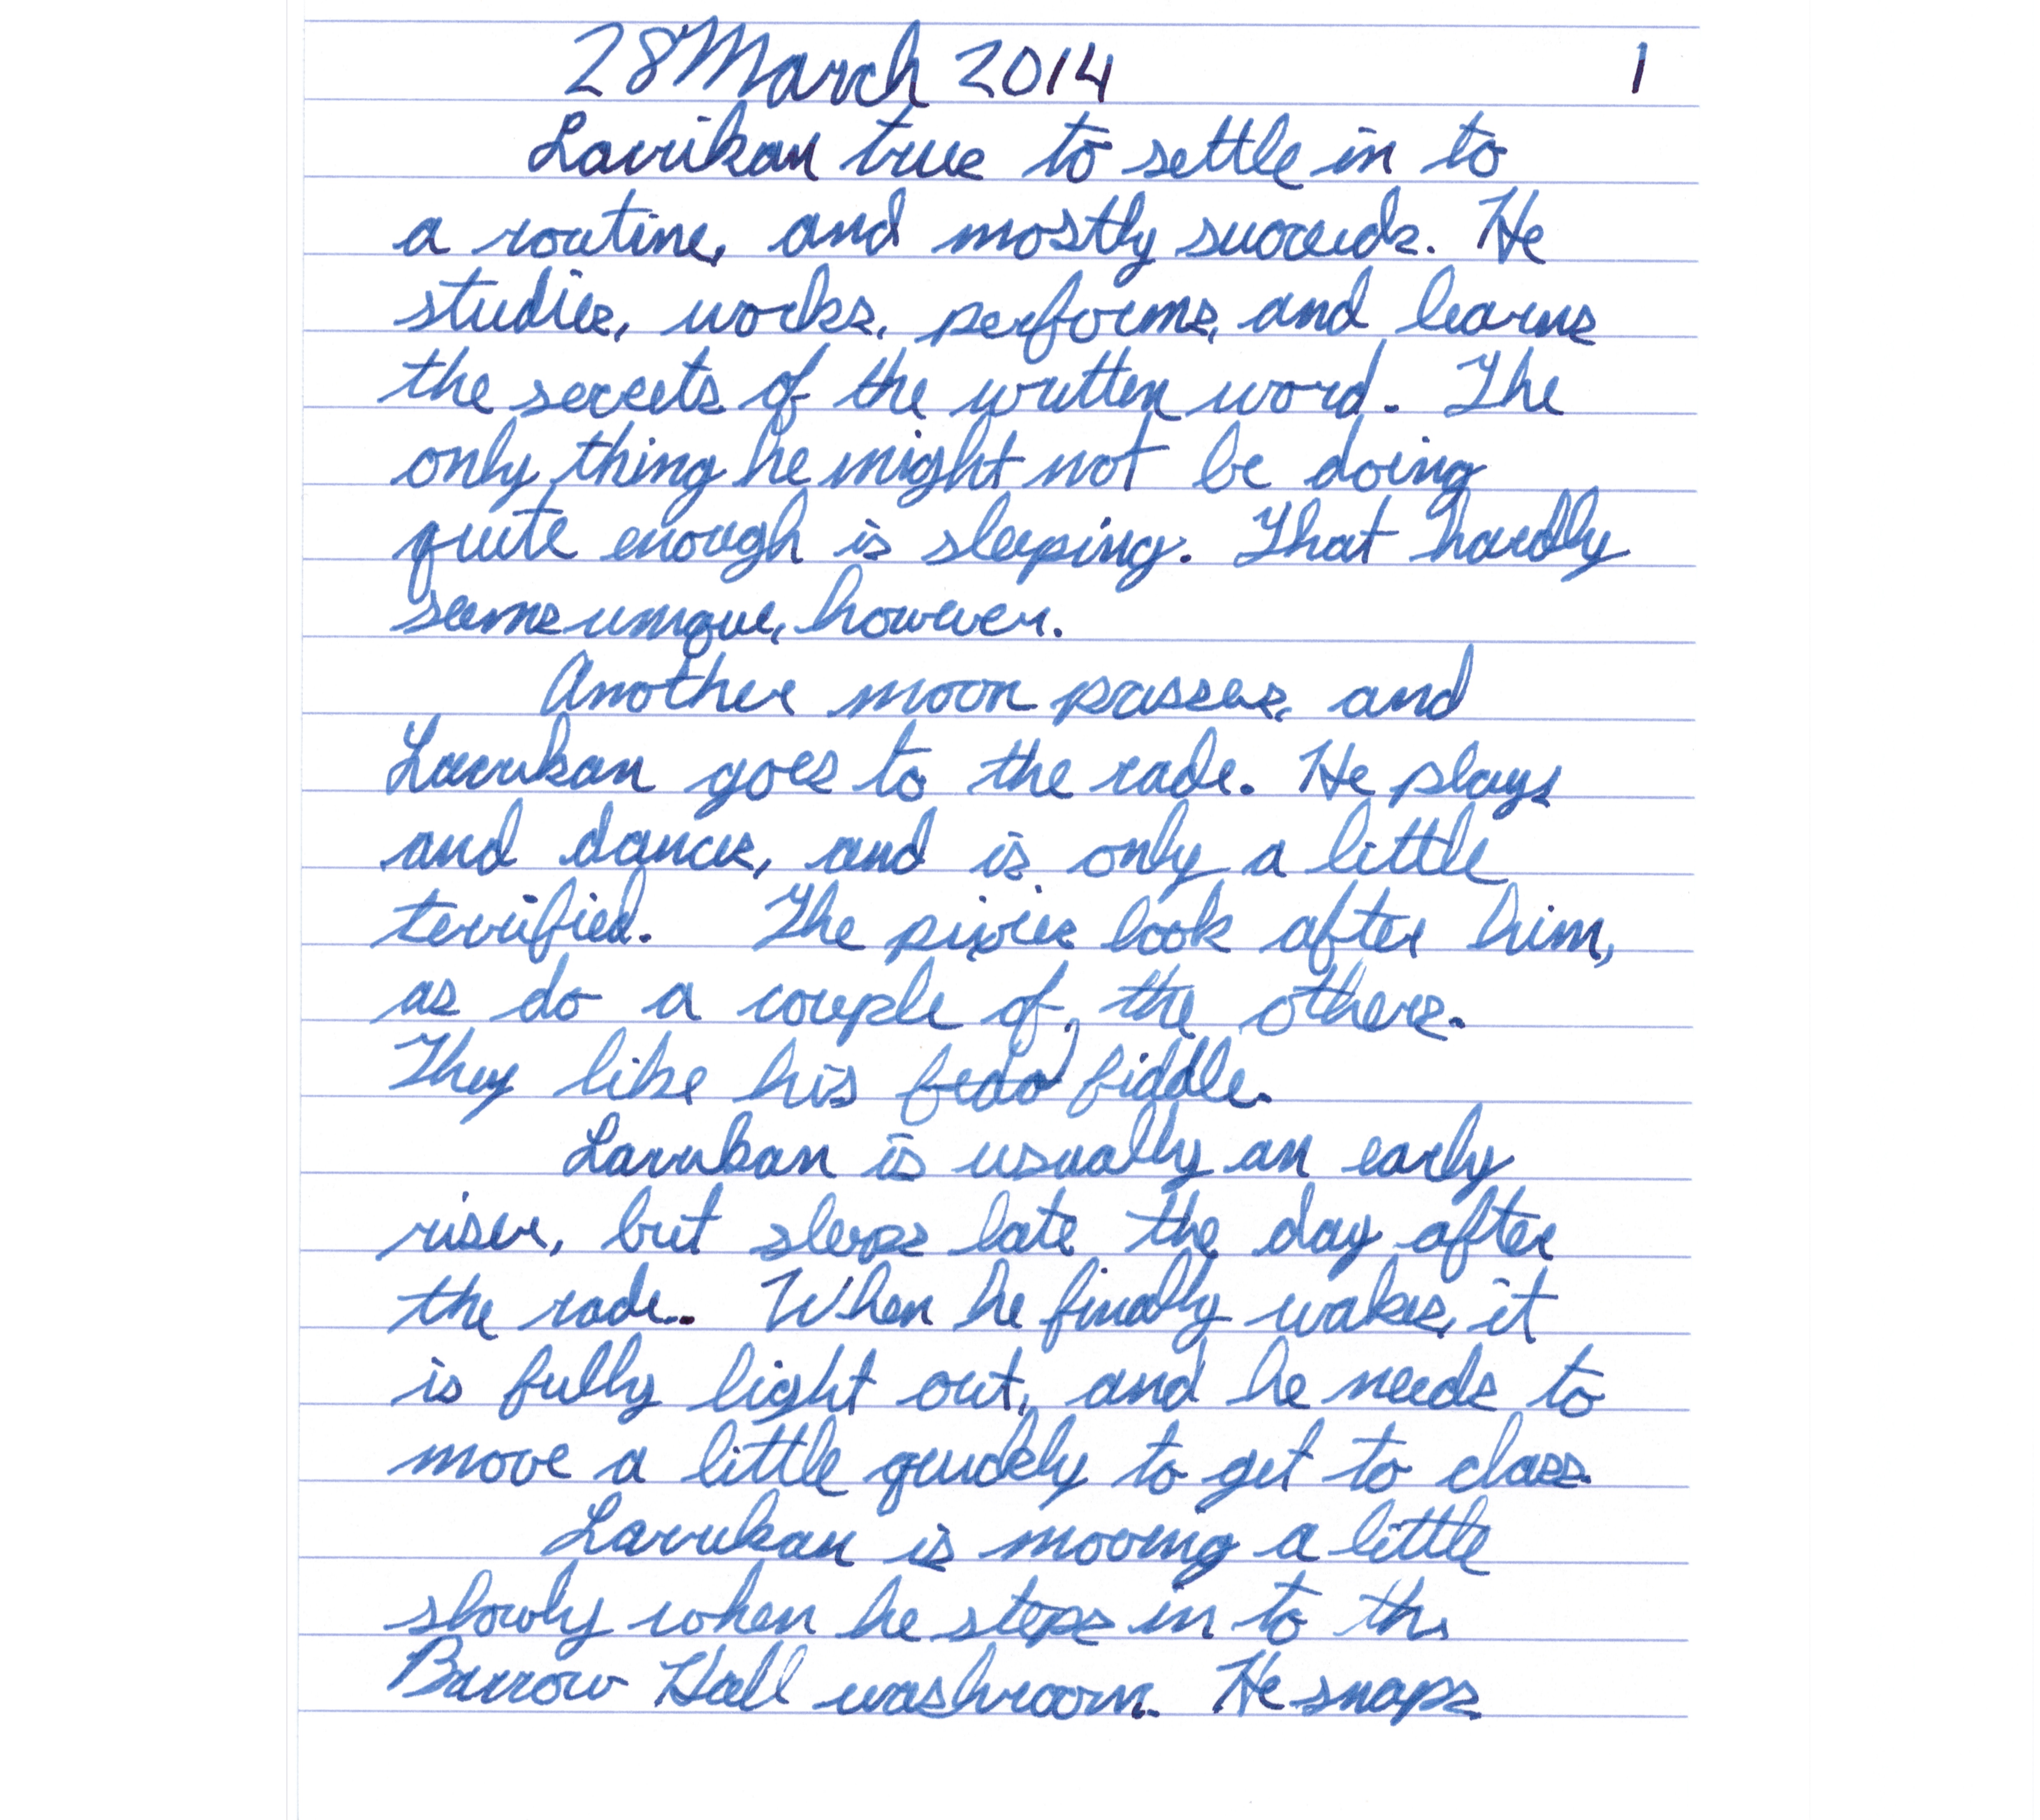 28 March 2014 1
Lavrikan true to settle in to
a routine, and mostly succeeds. He
studies, works, performs, and learns
the secrets of the written word. The
only thing he might not be doing
quite enough is sleeping. That hardly
seems unique, however.
Another moon passes, and
Lavrikan goes to the rade. He plays
and dances, and is only a little
terrified. The pixies look after him,
as do a couple of the others.
They like his fiddle.
Lavrikan is usually an early
riser, but sleeps late the day after
the rade. When he finally wakes, it
is fully light out, and he needs to
move a little quickly to get to class.
Lavrikan is moving a little
slowly when he steps in to the
Barrow Hall washroom. He snaps